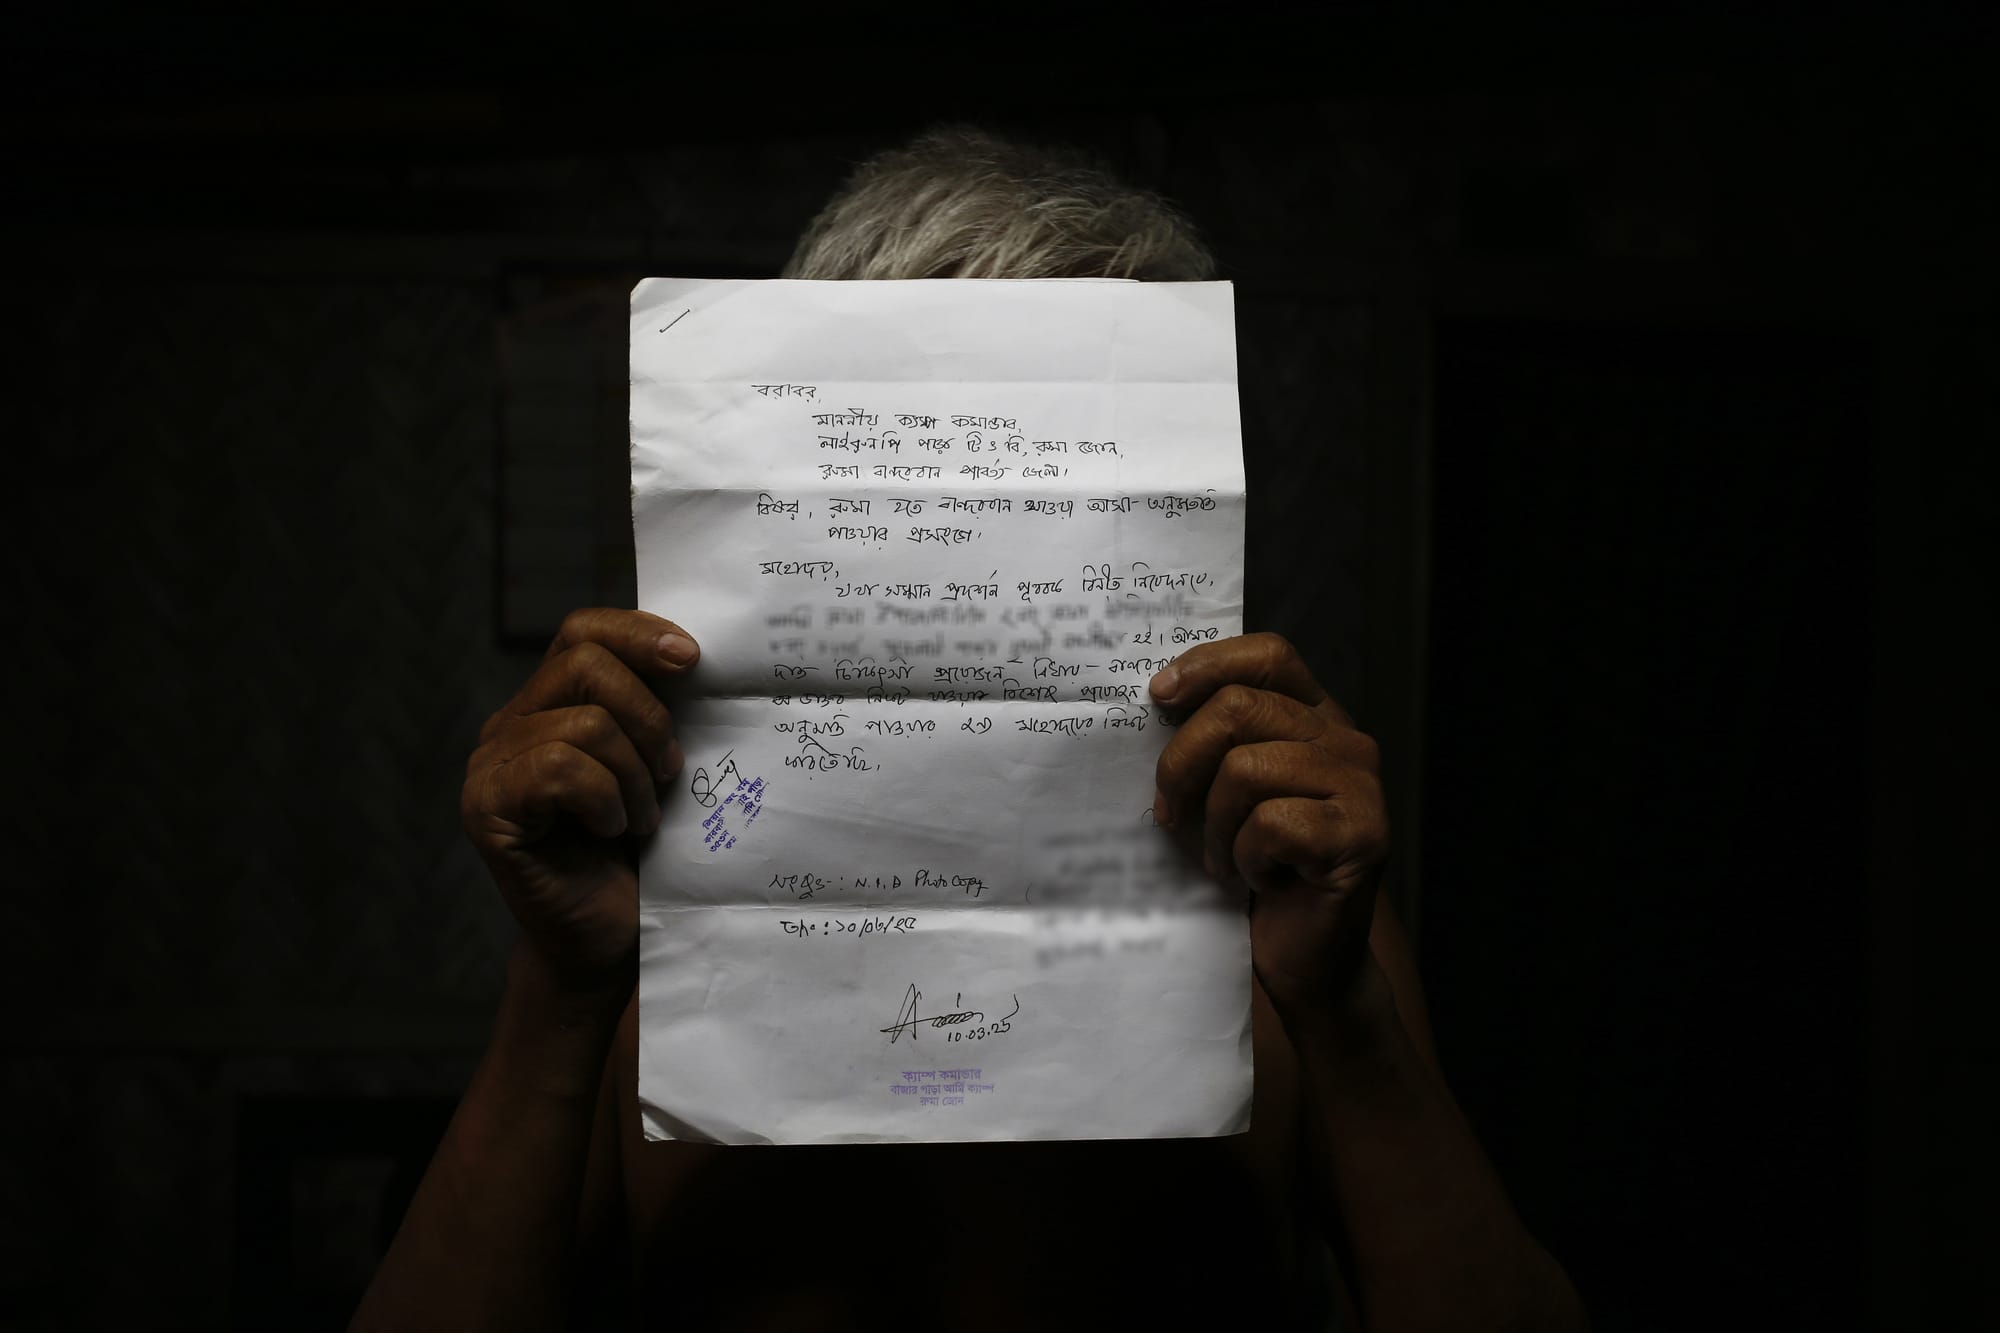 বরাবর,
মাননীয় ক্যাম্প কমান্ডার,
লাইরুনপি পাড়া টিওবি, রুমা জোন,
রুমা বান্দরবান পার্বত্য জেলা।
বিষয়, রুমা হতে বান্দরবান যাওয়া আসা- অনুমতি
পাওয়ার প্রসংগে।
মহোদয়,
যথা সম্মান প্রদর্শন পূর্বক বিনীত নিবেদন যে,
হই। আমার
দাঁত চিকিৎসা প্রয়োজন বিধায়-
ডাক্তার নিকট যাওয়ার বিশেষ প্রয়োজন
অনুমতি পাওয়ার জন্য মহোদয়ের নিকট
করিতেছি।
পাড়া
কারবারী
সংযুক্ত-: N.I.D Photo Copy
তাং: ১০/০৩/২৫
10.03.25
ক্যাম্প কমান্ডার
বাজার পাড়া আর্মি ক্যাম্প
রুমা জোন